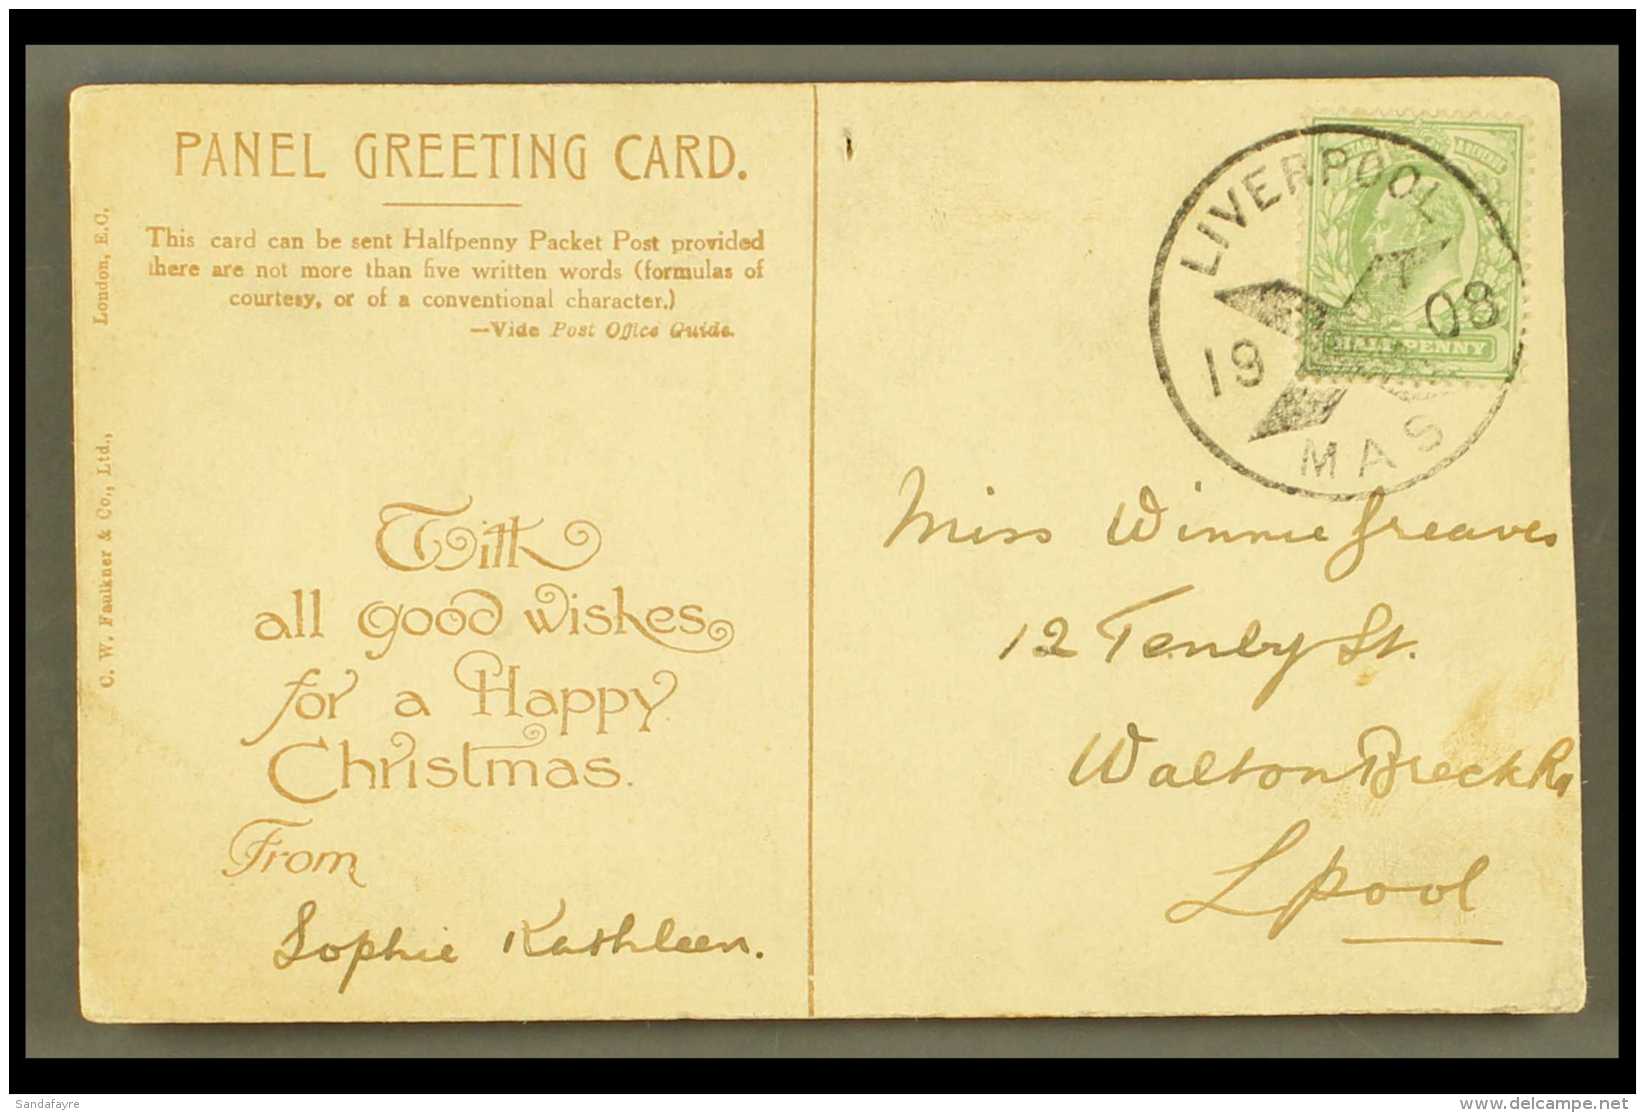 PANEL GREETING CARD.
This card can be sent Halfpenny Packet Post provided
there are not more than five written words (formulas of
courtesy, or of a conventional character.)
—Vide Post Office Guide.
C. W. Faulkner & Co., Ltd., London, E.C.
With
all good wishes
for a Happy
Christmas.
From
Sophie Kathleen.
LIVERPOOL
19 08
MAS
HALFPENNY
Miss Winnie Greaves
12 Tenby St.
Walton Breck Rd
Lpool
Sandafayre
www.delcampe.net